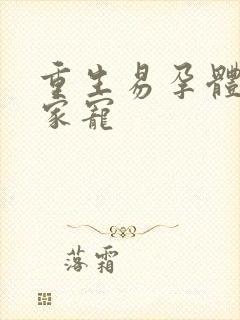 重生易孕體
家寵
落霜